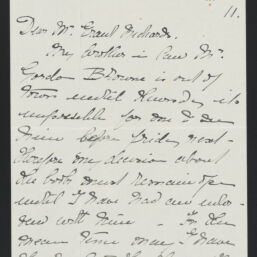 11.
Dear Mr. Grant Richards.
My brother in law Mr.
Gordon Browne is out of
town until Thursday, it is
impossible for me to see
him before Friday next -
therefore my decision about
the book must remain open
until I have had an inter-
view with him - In the
mean time may I have